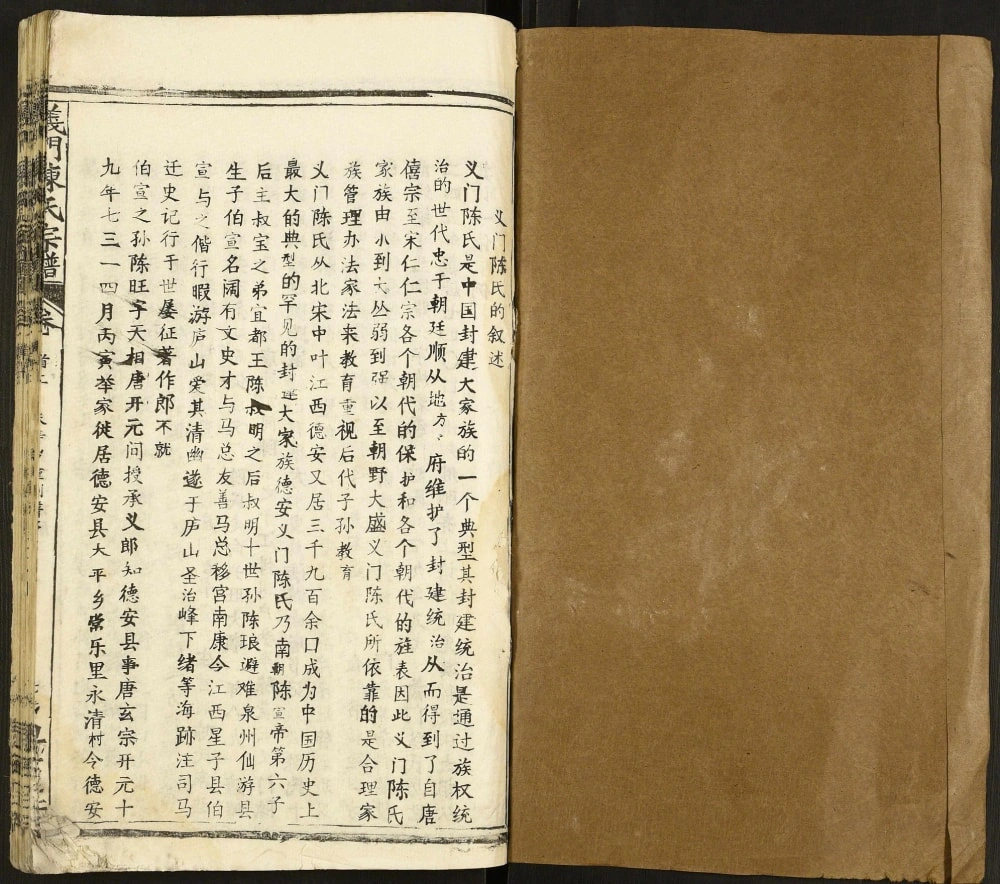 义门陈氏的叙述
义门陈氏是中国封建大家族的一个典型其封建统治是通过族权统
治的世代忠于朝廷顺从地方府维护了封建统治从而得到了自唐
僖宗至宋仁仁宗各个朝代的保护和各个朝代的旌表因此义门陈氏
家族由小到大丛弱到强以至朝野大盛义门陈氏所依靠的是合理家
族管理办法家法来教育重视后代子孙教育
义门陈氏丛北宋中叶江西德安又居三千九百余口成为中国历史上
最大的典型的罕见的封建大家族德安义门陈氏乃南朝陈宣帝第六子
后主叔宝之弟宜都王陈叔明之后叔明十世孙陈琅避难泉州仙游县
生子伯宣名阔有文史才与马总友善马总移宫南康今江西星子县伯
宣与之偕行暇游庐山爱其清幽遂于庐山圣治峰下绪等海跡注司马
迁史记行于世屡征著作郎不就
伯宣之孙陈旺字天相唐开元问授承义郎知德安县事唐玄宗开元十
九年七三一四月丙寅举家徙居德安县太平乡常乐里永清村今德安
義門陳氏宗譜
卷首